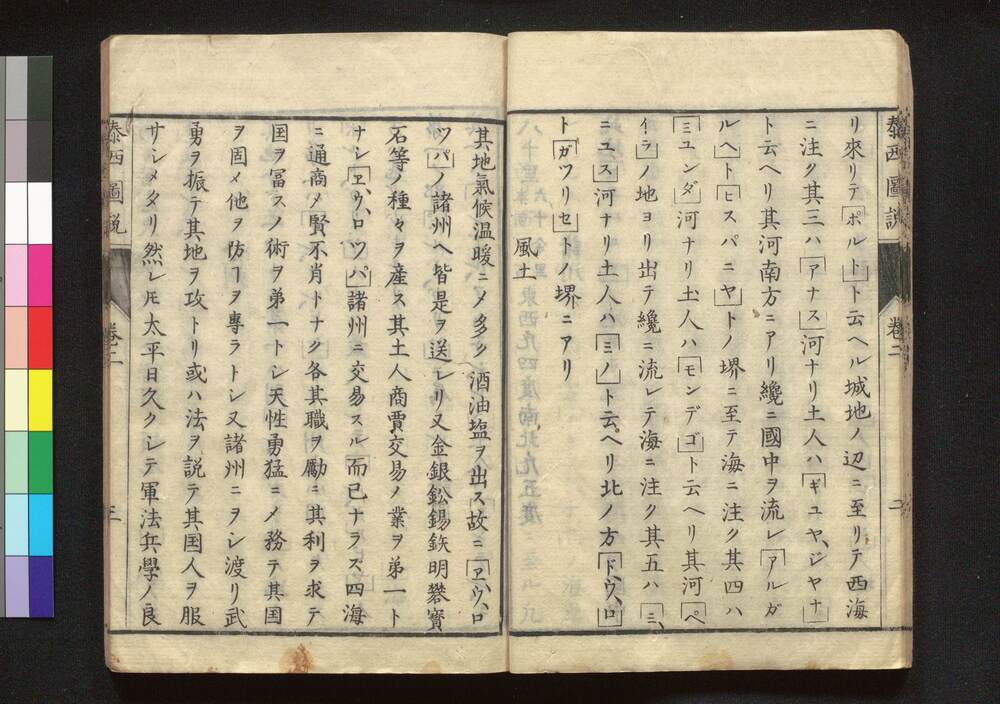 泰西圖説
卷二
二
リ來リテポルトト云ヘル城地ノ辺ニ至リテ西海
ニ注ク其三ハアナス河ナリ土人ハギユヤ、ジヤナ
ト云ヘリ其河南方ニアリ纔ニ國中ヲ流レアルガ
ルヘトヒスパニヤトノ堺ニ至テ海ニ注ク其四ハ
ミユンダ河ナリ土人ハモンデゴト云ヘリ其河ペ
イラノ地ヨリ出テ纔ニ流レテ海ニ注ク其五ハミ、
ニユス河ナリ土人ハミノト云ヘリ北ノ方ドウ、ロ
トガツリセトノ堺ニアリ
風土
其地氣候温暖ニメ多ク酒油塩ヲ出ス故ニヱウ、ロ
ツパノ諸州ヘ皆是ヲ送レリ又金銀鈆錫鉄明礬寳
石等ノ種々ヲ産ス其土人商賈交易ノ業ヲ弟一ト
ナシヱウ、ロツパ諸州ニ交易スル而已ナラズ四海
ニ通商メ賢不肖トナク各其職ヲ勵ニ其利ヲ求テ
国ヲ冨スノ術ヲ弟一トシ天性勇猛ニメ務テ其国
ヲ固メ他ヲ防ヿヲ專ラトシ又諸州ニヲシ渡リ武
勇ヲ振テ其地ヲ攻トリ或ハ法ヲ説テ其国人ヲ服
サシメタリ然レ𪜈太平日久クシテ軍法兵學ノ良
泰西圖説
卷二
三